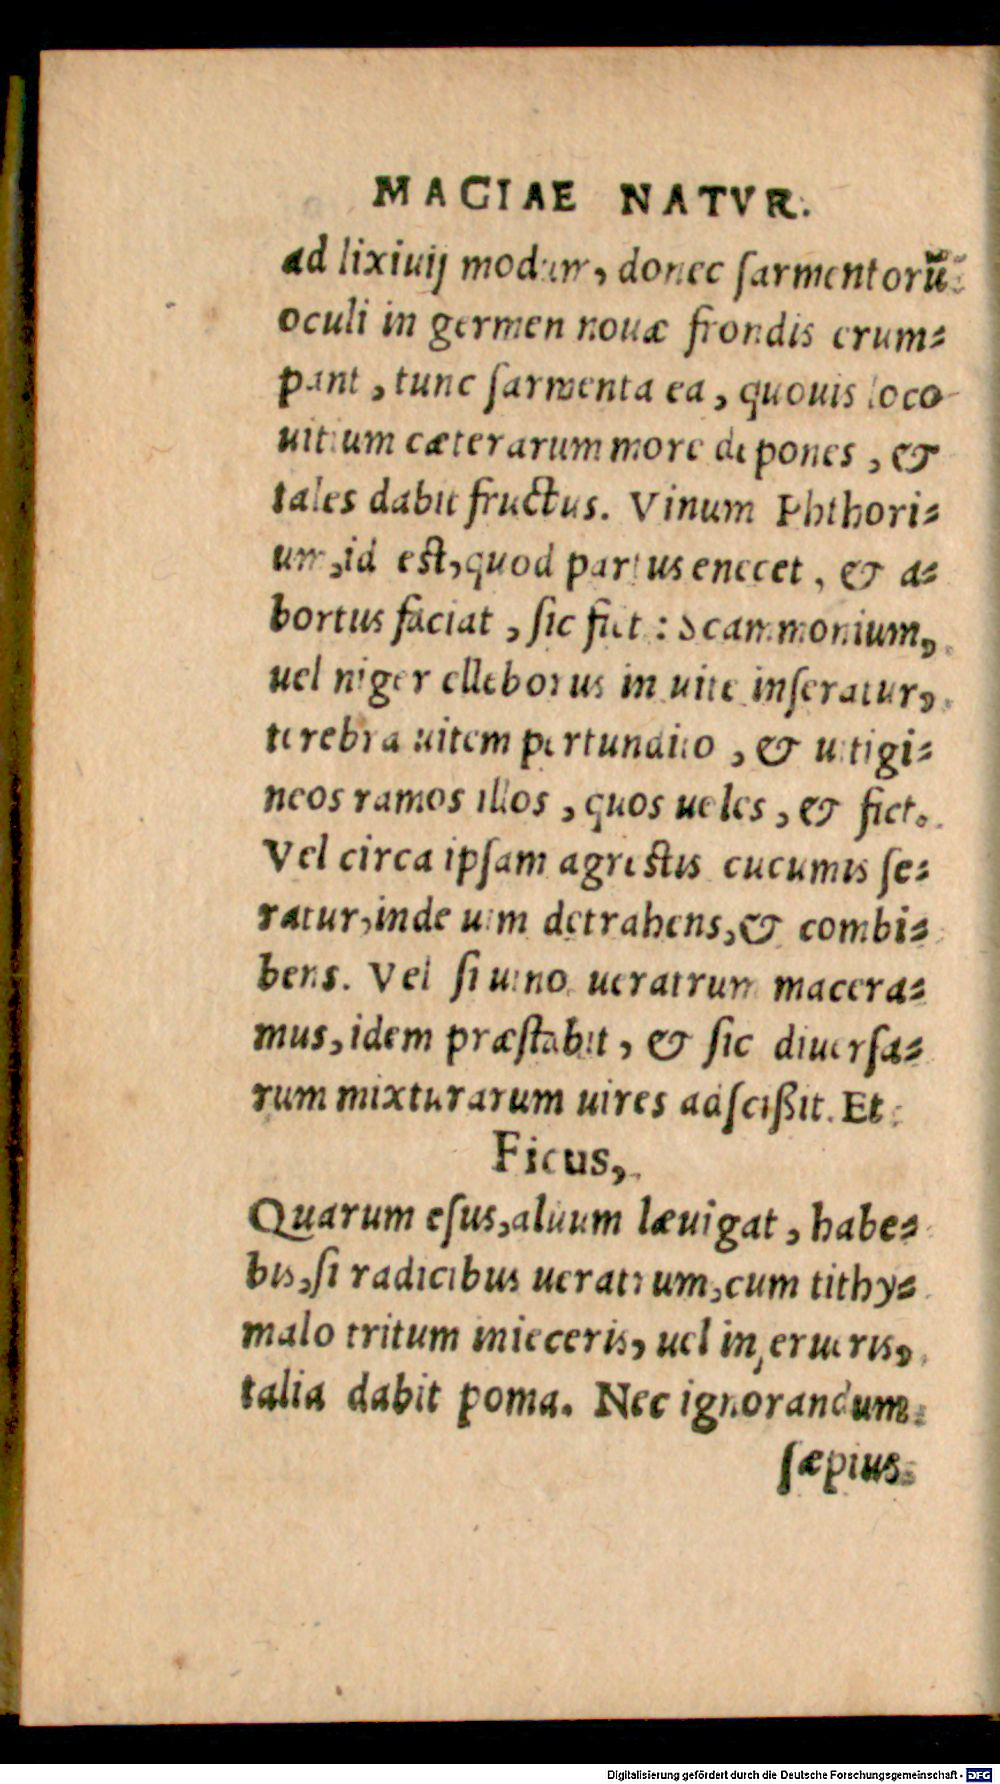 MAGIAE NATVR.
ad lixiuij modum, donec ſarmentorũ
oculi in germen nouæ frondis erum⸗
pant, tunc ſarmenta ea, quouis loco
uitium cæterarum more depones, &
tales dabit fructus. Vinum Phthori⸗
um, id est, quod partus enecet, & a⸗
bortus faciat, ſic fiet: Scammonium,
uel niger elleborus in uite inſeratur,
terebra uitem pertundito, & uitigi⸗
neos ramos illos, quos ueles, & fiet.
Vel circa ipſam agrestis cucumis ſe⸗
ratur, inde uim detrahens, & combi⸗
bens. Vel ſi uino ueratrum macera⸗
mus, idem præſtabit, & ſic diuerſa⸗
rum mixturarum uires adſcißit. Et
Ficus,
Quarum eſus, aluum læuigat, habe⸗
bis, ſi radicibus ueratrum, cum tithy⸗
malo tritum inieceris, uel inſerueris,
talia dabit poma. Nec ignorandum
ſæpius
Digitalisierung gefördert durch die Deutsche Forschungsgemeinschaft - DFG